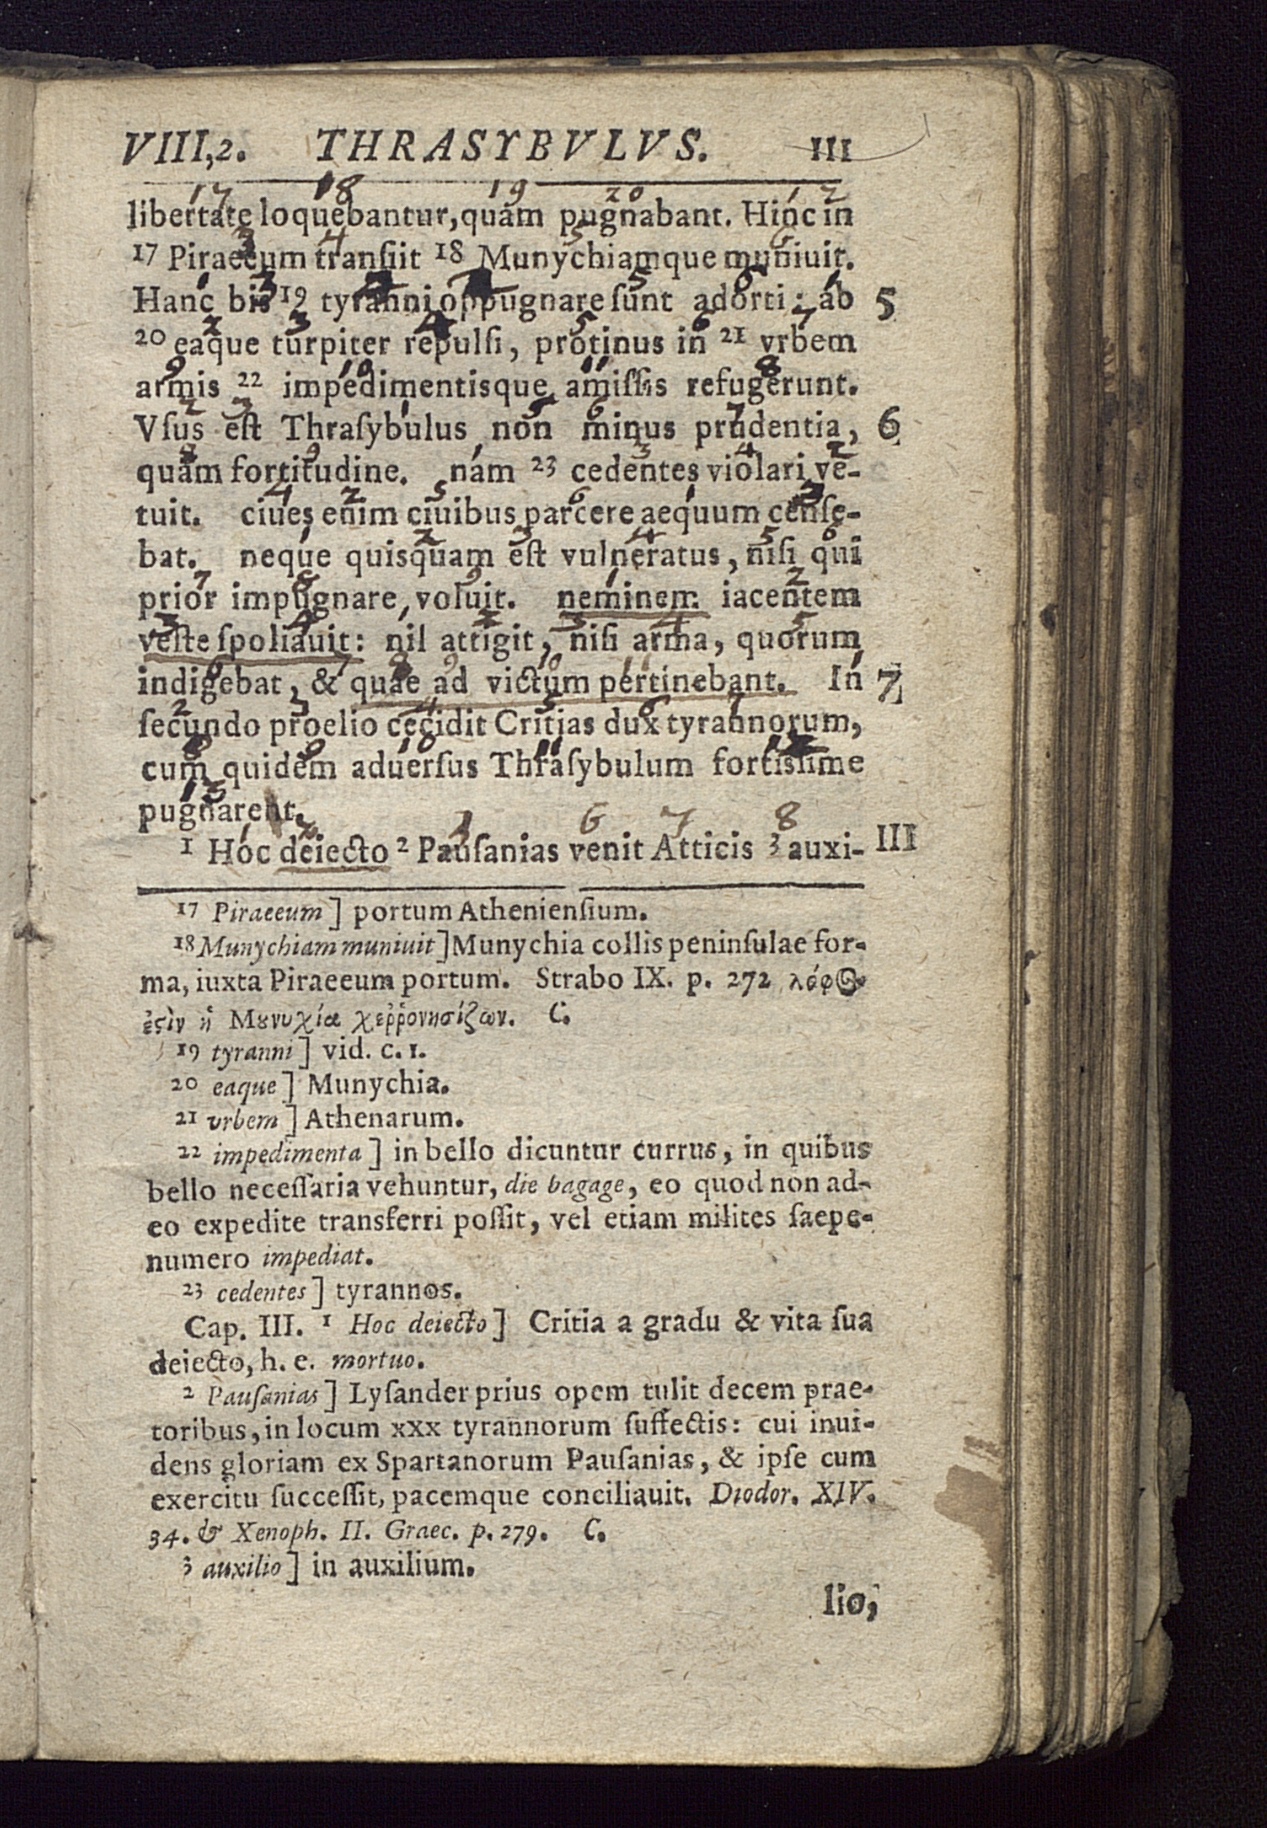 VIII,2. THRASYBVLVS. 111
libertate loquebantur, quam pugnabant. Hinc in
17 Piraeeum transiit 18 Munychiamque muniuit.
Hanc bis 19 tyranni oppugnare sunt adorti: ab 5
20 eaque turpiter repulsi, protinus in 21 vrbem
armis 22 impedimentisque amissis refugerunt.
Vsus est Thrasybulus non minus prudentia, 6
quam fortitudine. nam 23 cedentes violari ve-
tuit. ciues enim ciuibus parcere aequum cense-
bat. neque quisquam est vulneratus, nisi qui
prior impugnare voluit. neminem iacentem
veste spoliauit: nil attigit, nisi arma, quorum
indigebat, & quae ad victum pertinebant. In 7
secundo proelio cecidit Critias dux tyrannorum,
cum quidem aduersus Thrasybulum fortissime
pugnarent.
1 Hoc deiecto 2 Pausanias venit Atticis 3 auxi- III
17 Piraeeum] portum Atheniensium.
18 Munychiam muniuit] Munychia collis peninsulae for-
ma, iuxta Piraeeum portum. Strabo IX. p. 272 λόφος
ἐϛὶν ἡ Μȣνυχία χεῤῥονησίζων. C.
19 tyranni] vid. c. 1.
20 eaque] Munychia.
21 vrbem] Athenarum.
22 impedimenta] in bello dicuntur currus, in quibus
bello necessaria vehuntur, die bagage, eo quod non ad-
eo expedite transferri possit, vel etiam milites saepe-
numero impediat.
23 cedentes] tyrannos.
Cap. III. 1 Hoc deiecto] Critia a gradu & vita sua
deiecto, h. e. mortuo.
2 Pausanias] Lysander prius opem tulit decem prae-
toribus, in locum xxx tyrannorum suffectis: cui inui-
dens gloriam ex Spartanorum Pausanias, & ipse cum
exercitu successit, pacemque conciliauit. Diodor. XIV.
34. & Xenoph. II. Graec. p. 279. C.
3 auxilio] in auxilium.
lio,